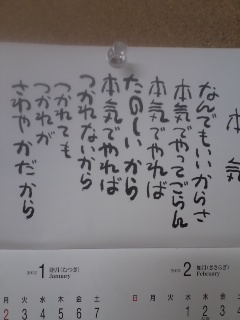 本気
なんでもいいからさ
本気でやってごらん
本気でやれば
たのしいから
本気でやれば
つかれないから
つかれても
つかれが
さわやかだから
2012 1 睦月(むつき) January
月 火 水 木 金 土
2 3 4 5 6 7
2012 2 如月(きさらぎ) February
日 月 火 水 木
1 2